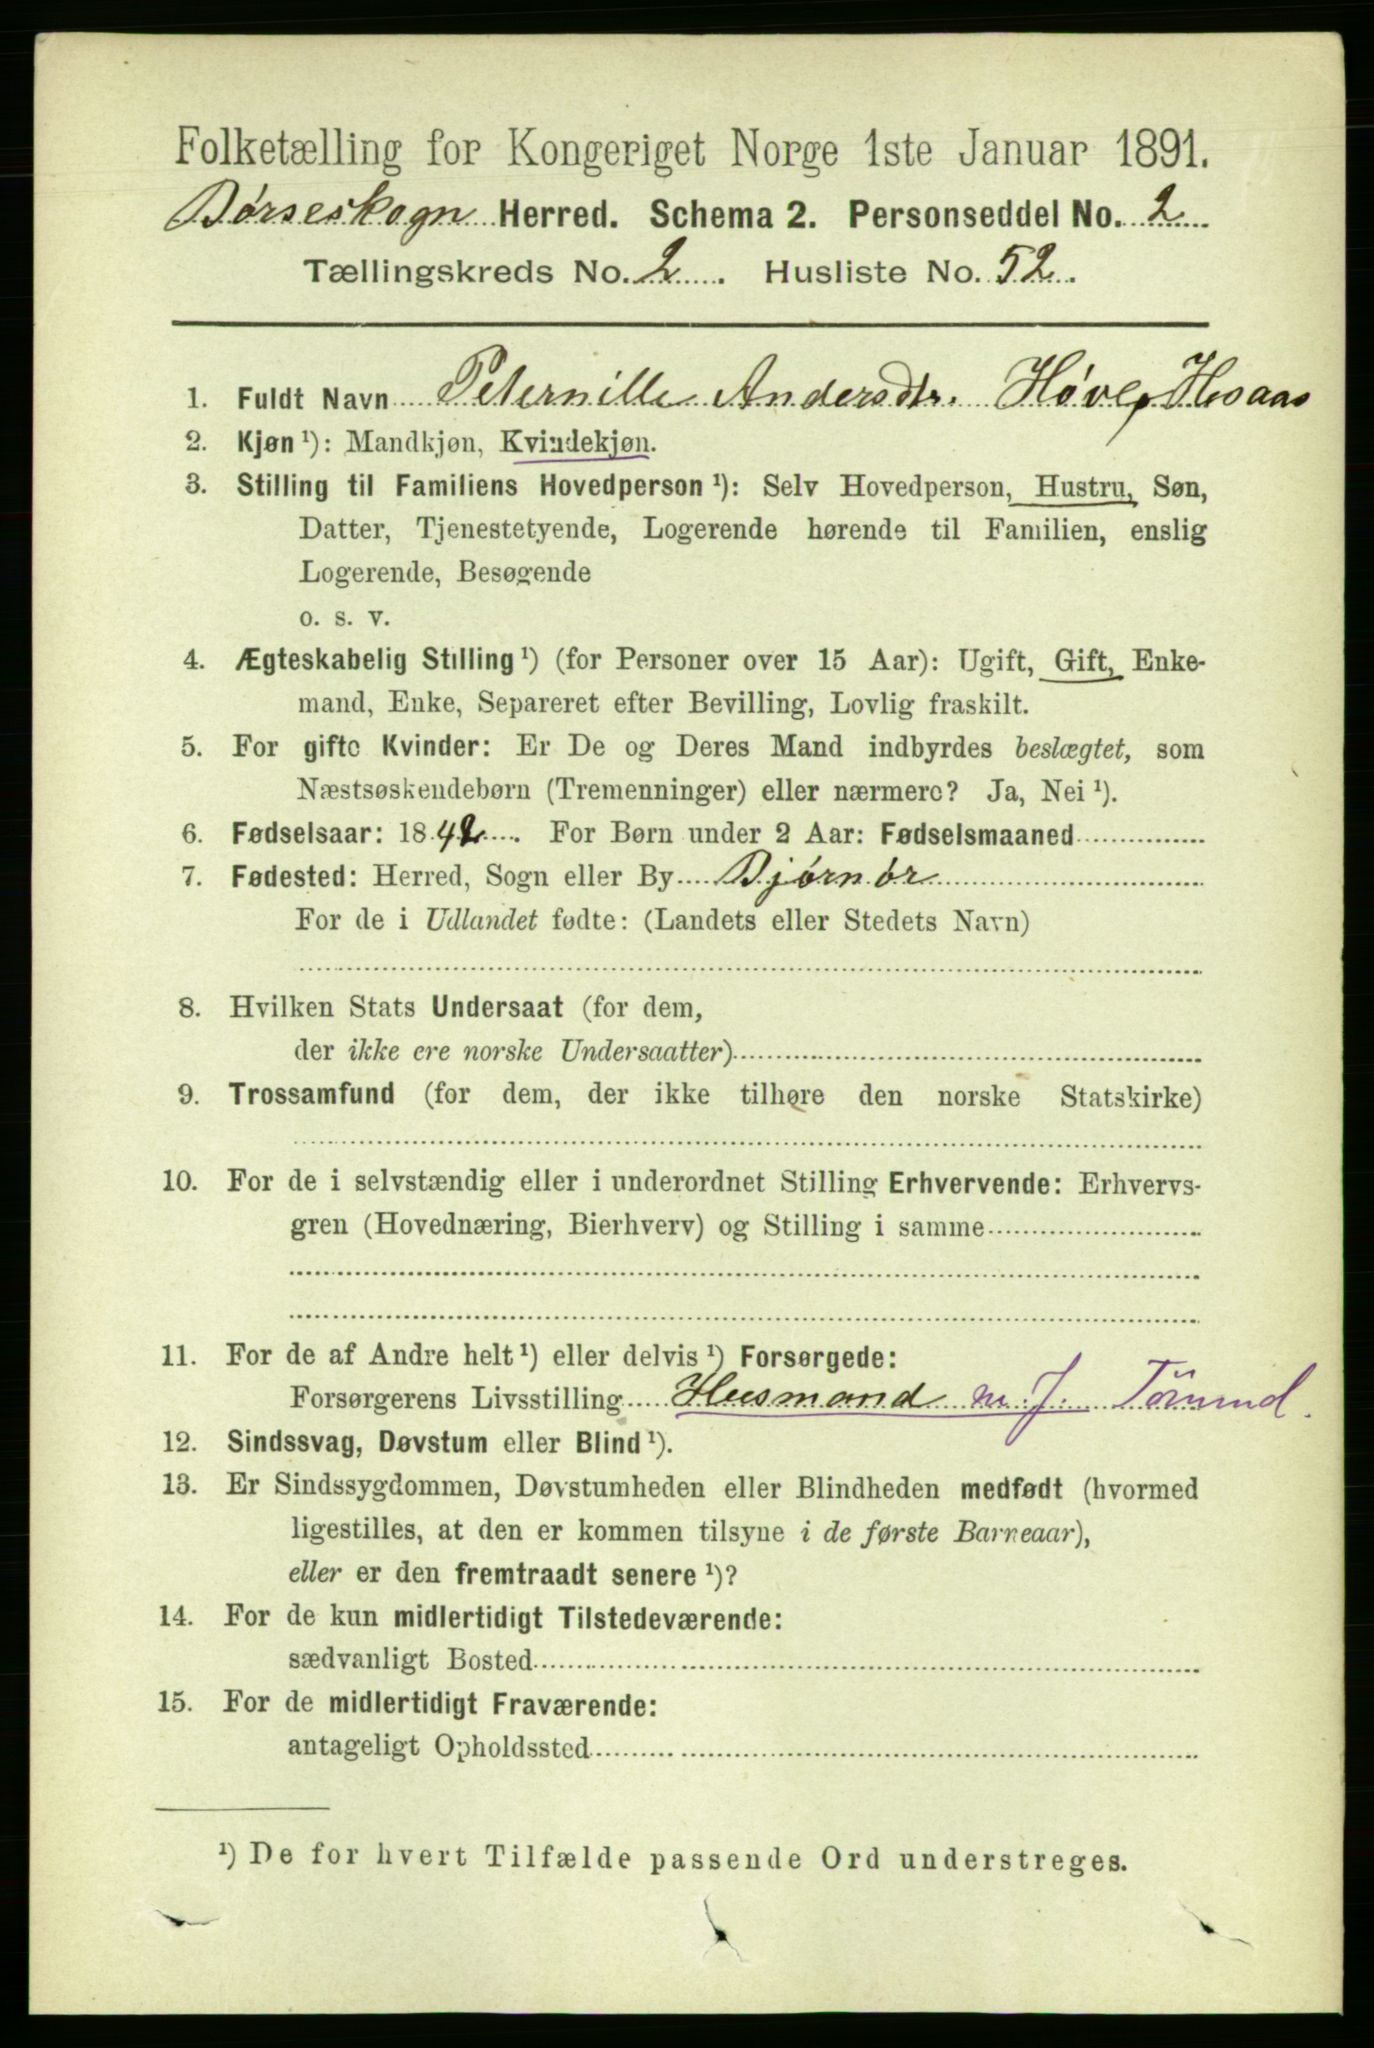 Folketælling for Kongeriget Norge 1ste Januar 1891.
Børseskogn Herred. Schema 2. Personseddel No. 2
Tællingskreds No. 2. Husliste No. 52.
1. Fuldt Navn Peternille Andersdtr.
2. Kjøn ¹): Mandkjøn, Kvindekjøn.
3. Stilling til Familiens Hovedperson ¹): Selv Hovedperson, Hustru, Søn,
Datter, Tjenestetyende, Logerende hørende til Familien, enslig
Logerende, Besøgende
o. s. v.
4. Ægteskabelig Stilling ¹) (for Personer over 15 Aar): Ugift, Gift, Enke-
mand, Enke, Separeret efter Bevilling, Lovlig fraskilt.
5. For gifte Kvinder: Er De og Deres Mand indbyrdes beslægtet, som
Næstsøskendebørn (Tremenninger) eller nærmere? Ja, Nei ¹).
6. Fødselsaar: 1842. For Børn under 2 Aar: Fødselsmaaned
7. Fødested: Herred, Sogn eller By Bjørnør
For de i Udlandet fødte: (Landets eller Stedets Navn)
8. Hvilken Stats Undersaat (for dem,
der ikke ere norske Undersaatter)
9. Trossamfund (for dem, der ikke tilhøre den norske Statskirke)
10. For de i selvstændig eller i underordnet Stilling Erhvervende: Erhvervs-
gren (Hovednæring, Bierhverv) og Stilling i samme
11. For de af Andre helt ¹) eller delvis ¹) Forsørgede:
Forsørgerens Livsstilling Husmand m. J.
12. Sindssvag, Døvstum eller Blind ¹).
13. Er Sindssygdommen, Døvstumheden eller Blindheden medfødt (hvormed
ligestilles, at den er kommen tilsyne i de første Barneaar),
eller er den fremtraadt senere ¹)?
14. For de kun midlertidigt Tilstedeværende:
sædvanligt Bosted
15. For de midlertidigt Fraværende:
antageligt Opholdssted
¹) De for hvert Tilfælde passende Ord understreges.